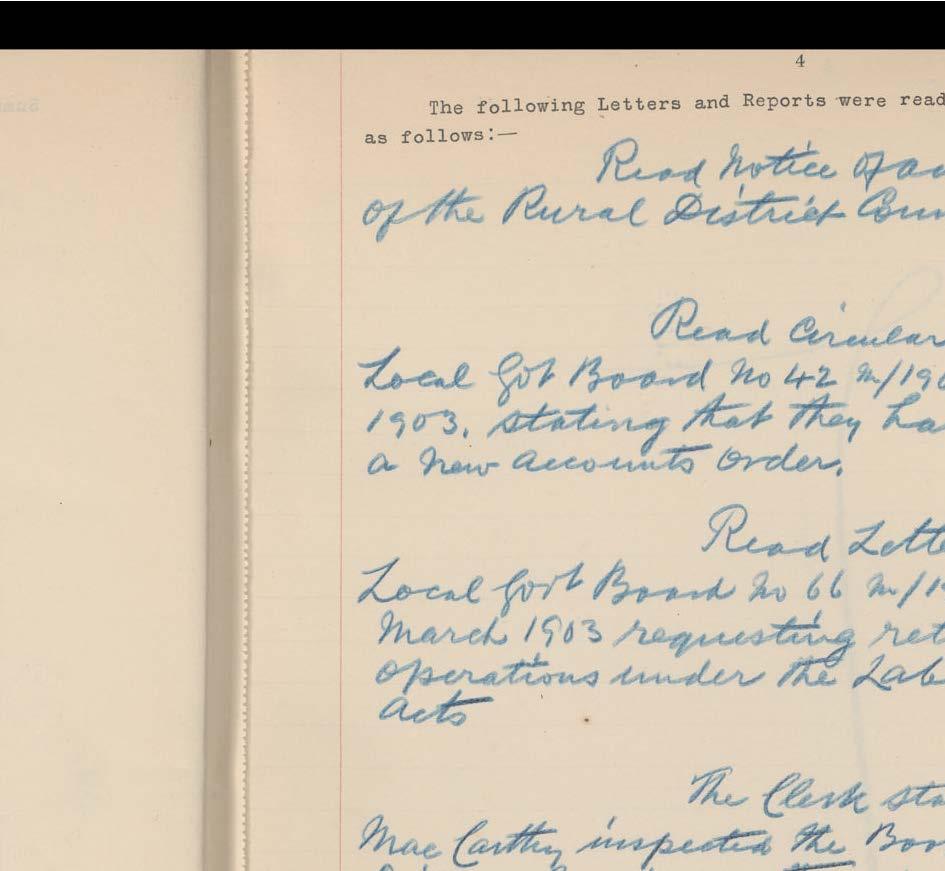 4
The following Letters and Reports were read
as follows:—
Read Notice of
of the Rural District Coun
Read Circular
Local Gvt Board No 42 M/190
1903, stating that they ha
a new accounts order.
Read Lette
Local Govt Board No 66 M/1
March 1903 requesting ret
operations under the Lab
Acts
The Clerk sta
Mac Carthy inspected the Boo